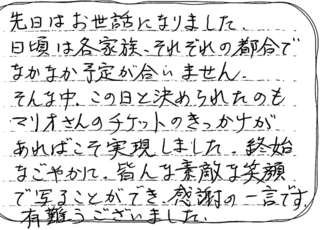 先日はお世話になりました.
日頃は各家族、それぞれの都合で
なかなか予定が合いません.
そんな中、この日と決められたのも
マリオさんのチケットのきっかけが
あればこそ実現しました。終始
なごやかに、皆んな素敵な笑顔
で写ることができ、感謝の一言です.
有難うございました.